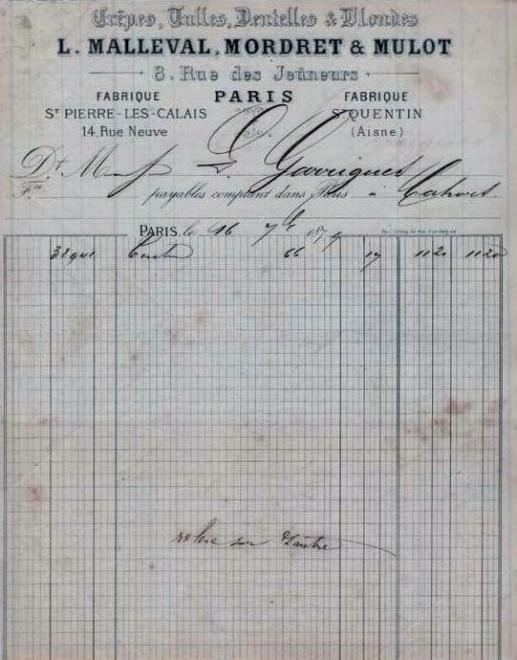 Crêpes, Tulles, Dentelles & Blondes
L. MALLEVAL, MORDRET & MULOT
8, Rue des Jeûneurs
PARIS
FABRIQUE
ST PIERRE-LES-CALAIS
14, Rue Neuve
FABRIQUE
ST QUENTIN
(Aisne)
Dt M G. Garrigues
payables comptant dans Paris à Cahors.
PARIS, le 16 7bre 1879
38941 66 17 1120 1120
sur